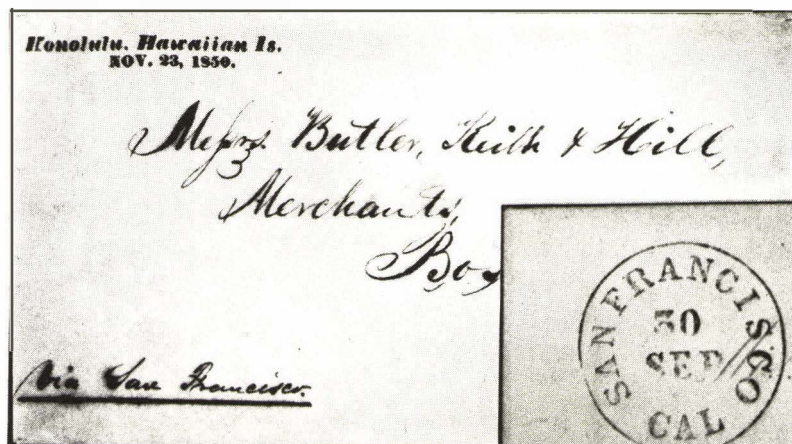 Honolulu, Hawaiian Is.
NOV. 23, 1850.
Messrs. Butler, Keith & Hill,
Merchants,
Bos
Via San Francisco.
SAN FRANCISCO
30
SEP
CAL